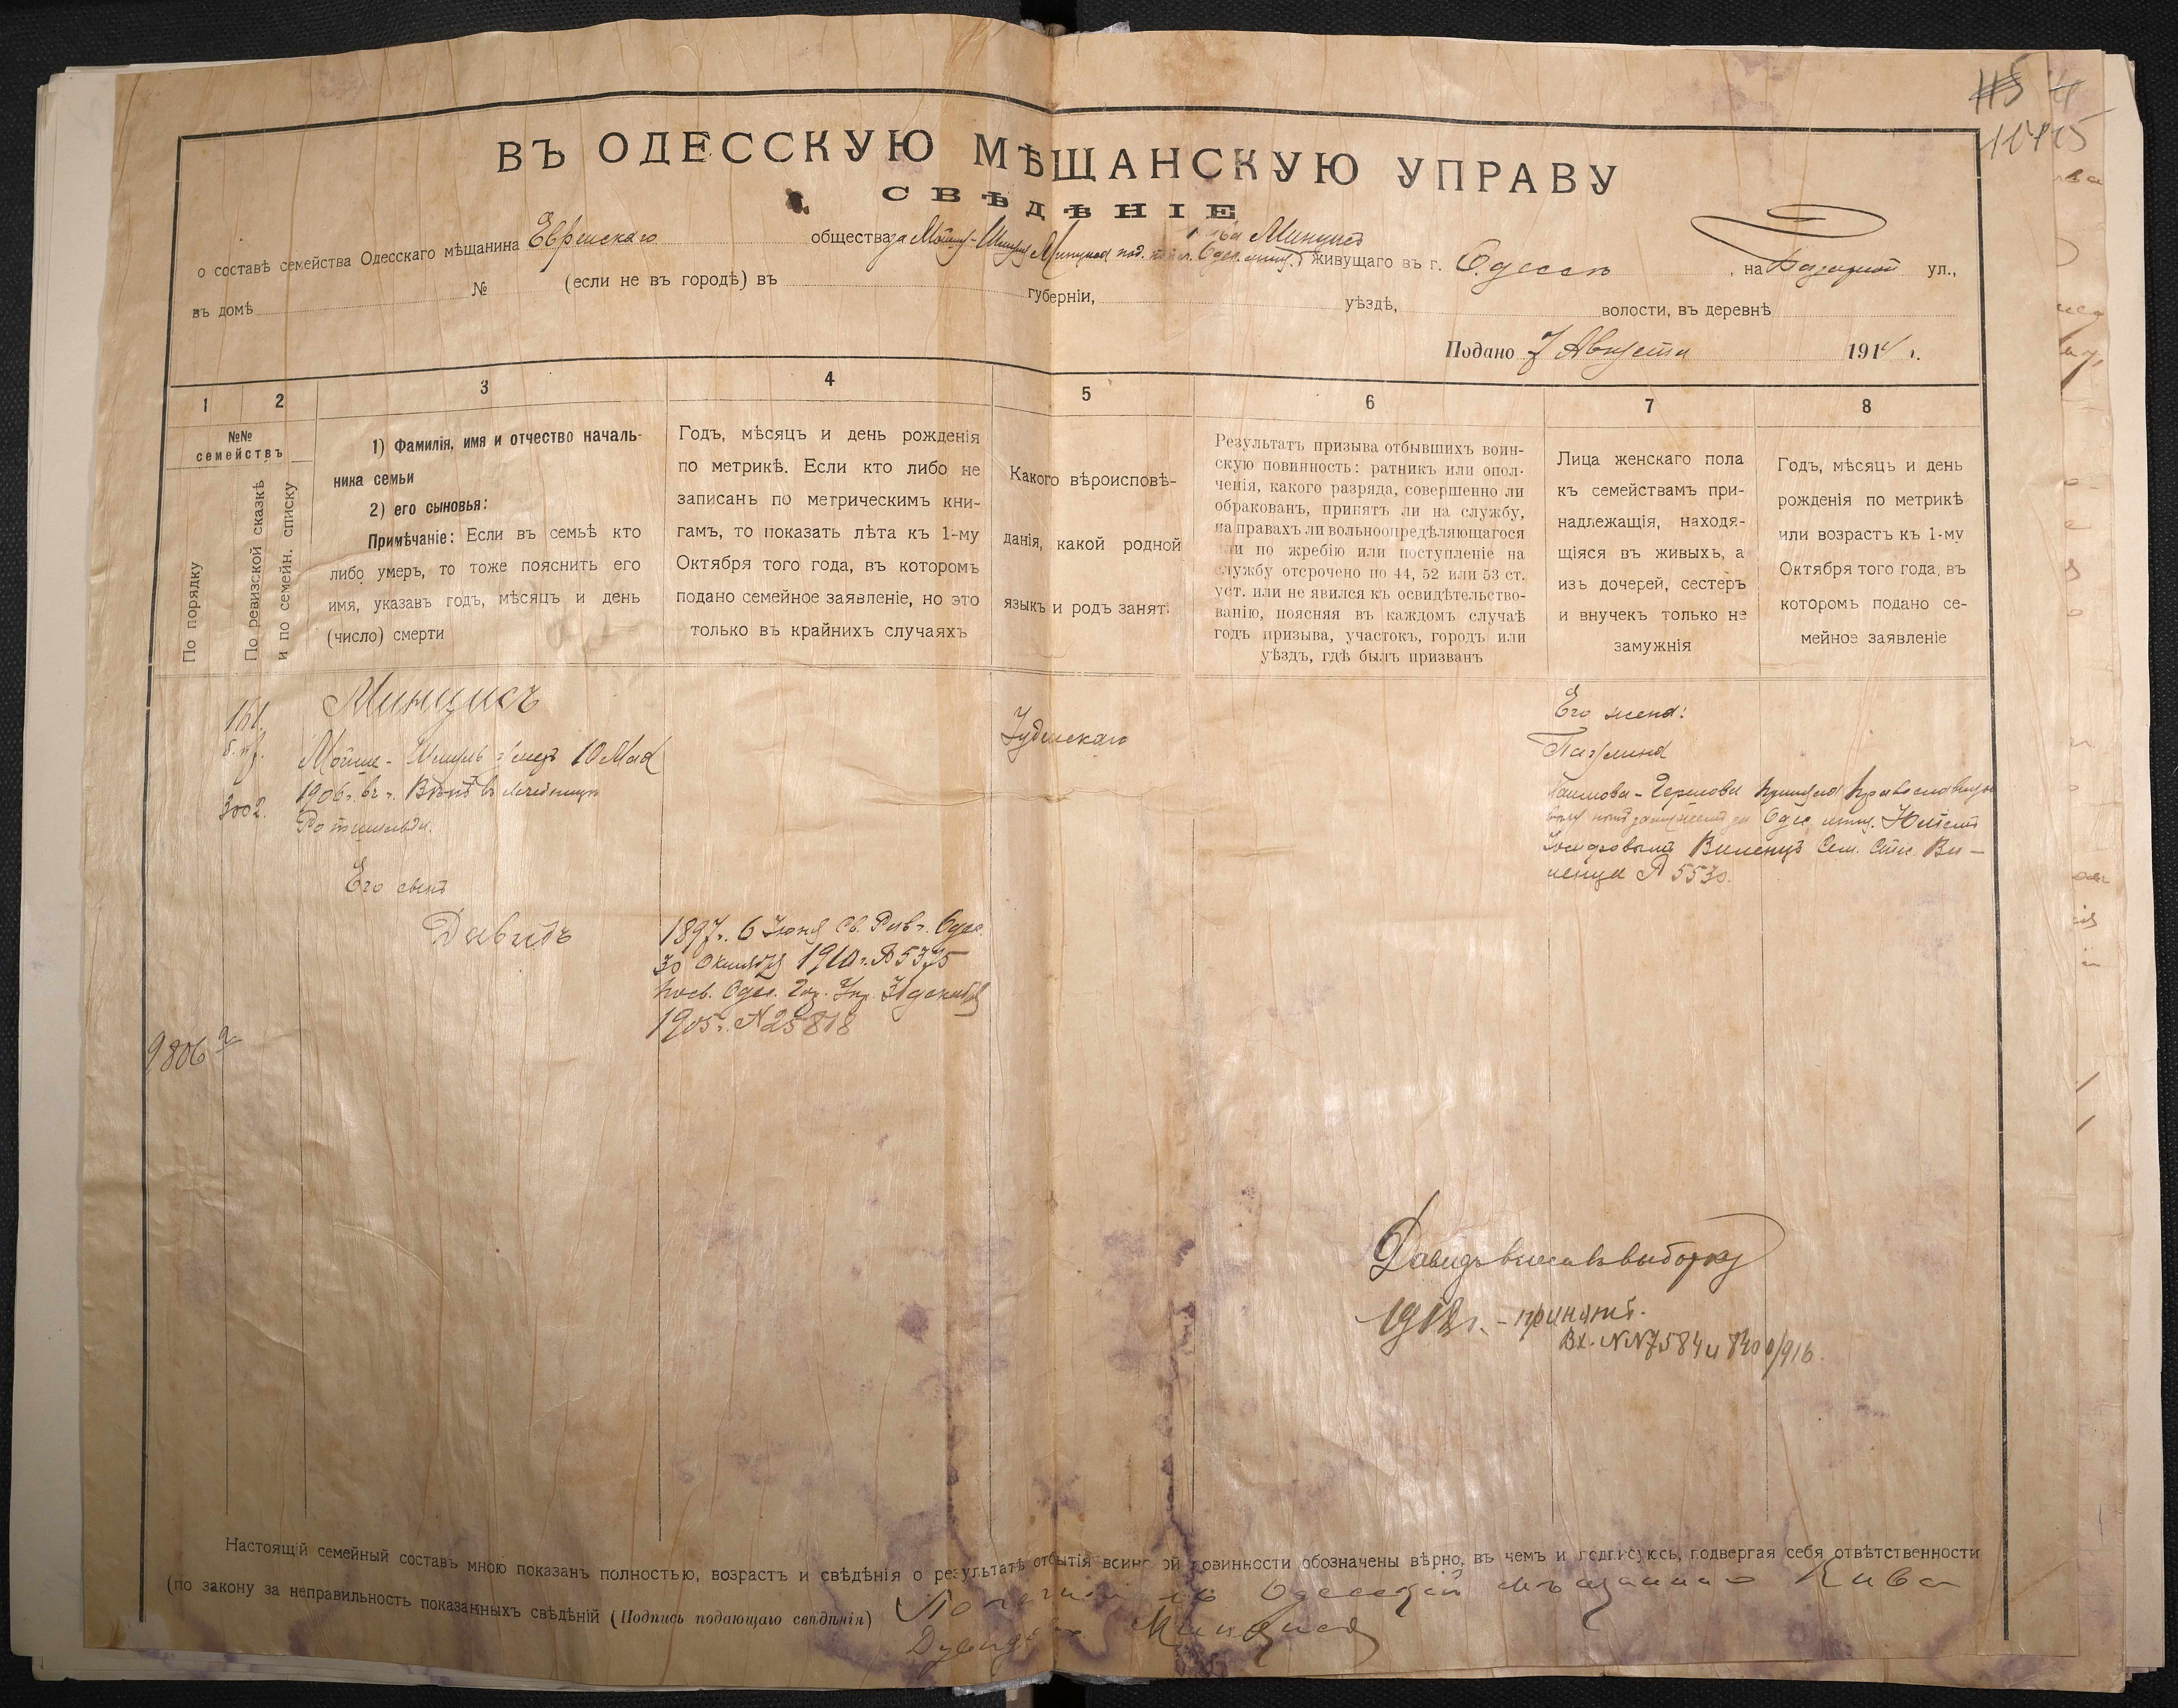 4
10415
ВЪ ОДЕССКУЮ МѢЩАНСКУЮ УПРАВУ
СВѢДѢНІЕ
о составѣ семейства Одесскаго мѣщанина Еврейскаго общества за Мойше-Шмуля Минциса под. Одес. мѣщ. Кива Минцисъ живущаго въ г. Одессѣ, на Базарной ул.,
въ домѣ № (если не въ городѣ) въ губерніи, уѣздѣ, волости, въ деревнѣ
Подано 7 Августа 1914 г.
1 2 3 4 5 6 7 8
№№ семействъ
По порядку
По ревизской сказкѣ
и по семейн. списку
1) Фамилія, имя и отчество началь-
ника семьи
2) его сыновья:
Примѣчаніе: Если въ семьѣ кто
либо умеръ, то тоже пояснить его
имя, указавъ годъ, мѣсяцъ и день
(число) смерти
Годъ, мѣсяцъ и день рожденія
по метрикѣ. Если кто либо не
записанъ по метрическимъ кни-
гамъ, то показать лѣта къ 1-му
Октября того года, въ которомъ
подано семейное заявленіе, но это
только въ крайнихъ случаяхъ
Какого вѣроисповѣ-
данія, какой родной
языкъ и родъ занят.
Результатъ призыва отбывшихъ воин-
скую повинность: ратникъ или опол-
ченія, какого разряда, совершенно ли
обракованъ, принятъ ли на службу,
на правахъ ли вольноопредѣляющагося
или по жребію или поступленіе на
службу отсрочено по 44, 52 или 53 ст.
уст. или не явился къ освидѣтельство-
ванію, поясняя въ каждомъ случаѣ
годъ призыва, участокъ, городъ или
уѣздъ, гдѣ былъ призванъ
Лица женскаго пола
къ семействамъ при-
надлежащія, находя-
щіяся въ живыхъ, а
изъ дочерей, сестеръ
и внучекъ только не
замужнія
Годъ, мѣсяцъ и день
рожденія по метрикѣ
или возрастъ къ 1-му
Октября того года, въ
которомъ подано се-
мейное заявленіе
Минцисъ
161.
Мойше-Шмуль умеръ 10 Мая
1906 г. въ г. Вѣнѣ въ лечебницѣ
3002.
Ротшильда.
Его сынъ
Давидъ
1897 г. 6 Іюня Св. Рав. г. Одес.
30 Октября 1910 г. № 5375
посв. Одес. Гор. Упр. декабря
1905 г. № 25818
9806
Іудейскаго
Его жена:
Перлина
Хаимова-Гершова приняла православную
вѣру Одес. мѣщ.
Іосифовымъ Виленцъ Сем. Спис. Ви-
ленца № 5530.
Давидъ внесенъ въ выборку
1918 г. - принятъ.
Вх. NN 7584 и 8400/916.
Настоящій семейный составъ мною показанъ полностью, возрастъ и свѣдѣнія о результатѣ отбытія воинской повинности обозначены вѣрно, въ чемъ и подписуюсь, подвергая себя отвѣтственности
(по закону за неправильность показанныхъ свѣдѣній (Подпись подающаго свѣдѣнія) Одесскій мѣщанинъ Кива
Минцисъ